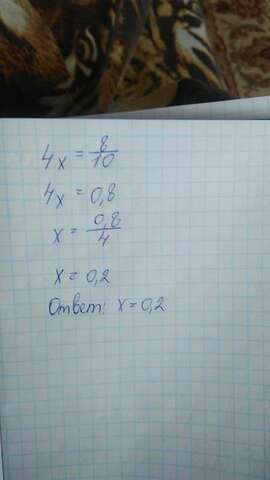 4x = 8/10
4x = 0,8
x = 0,8/4
x = 0,2
Ответ: x = 0,2